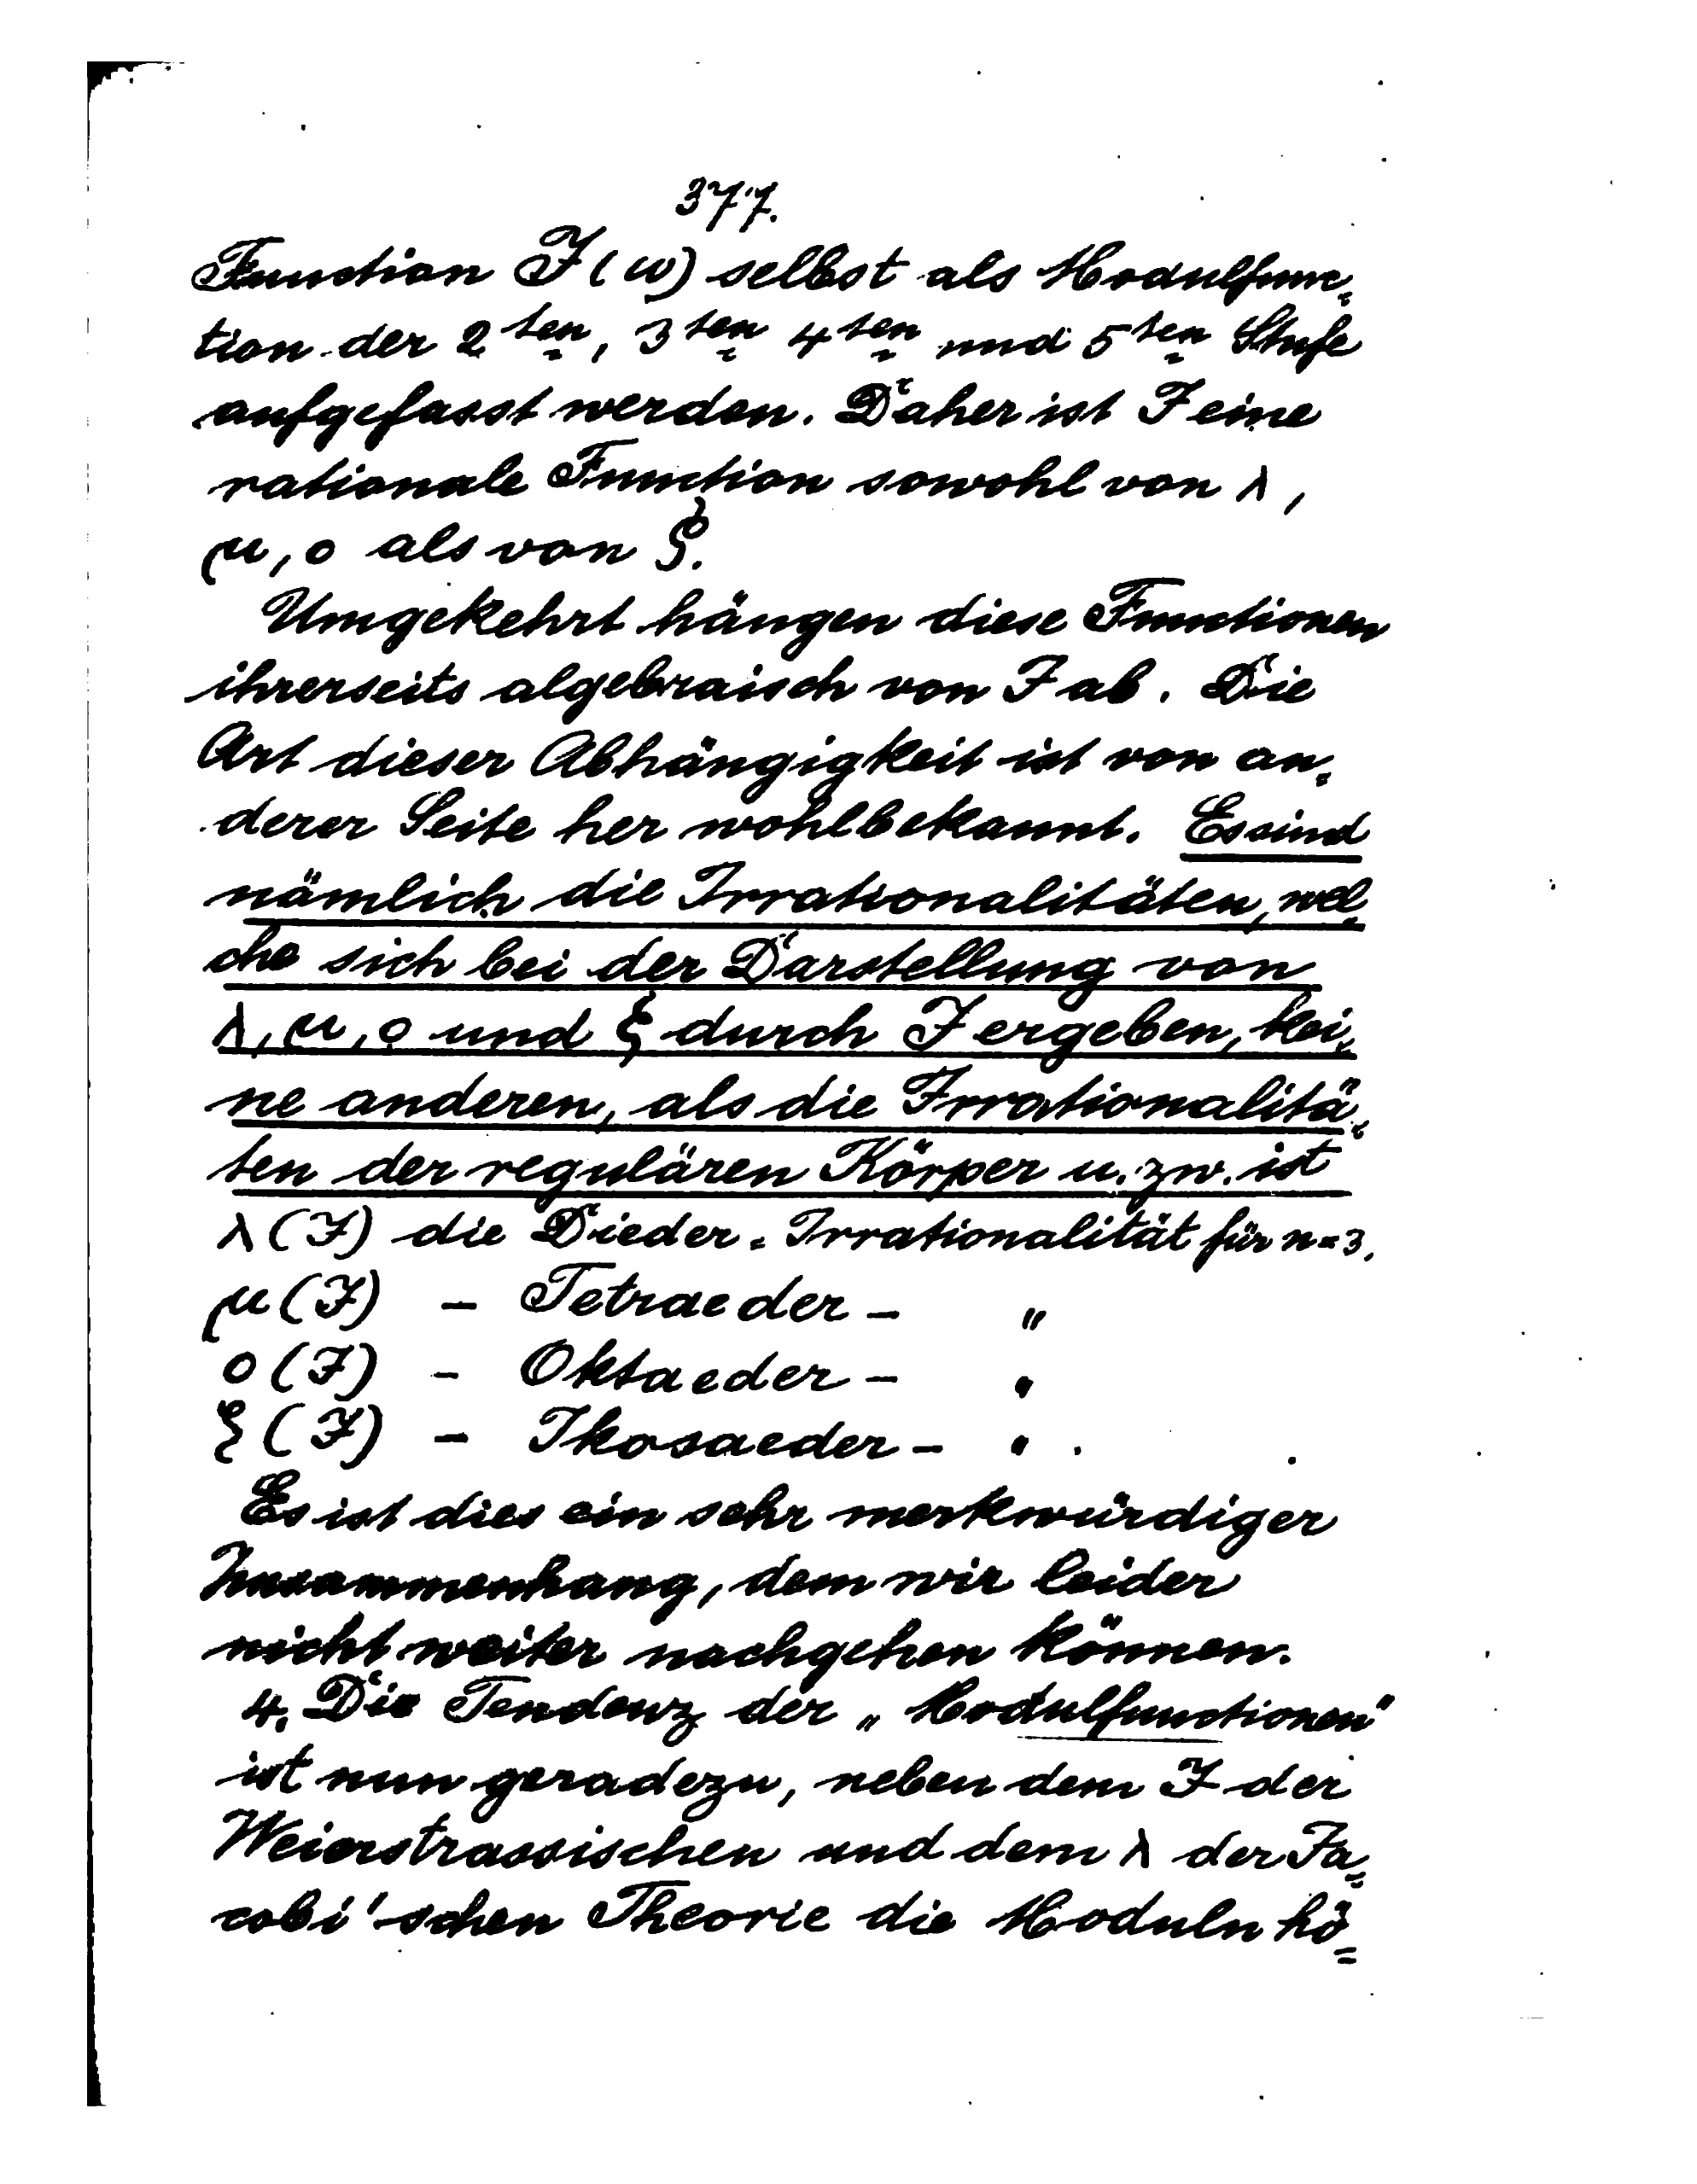 377.
Function J(ω) selbst als Modulfunc=
tion der 2ten, 3ten 4ten und 5ten Stufe
aufgefasst werden. Daher ist J eine
rationale Function sowohl von λ,
μ, o als von ξ.
Umgekehrt hängen diese Functionen
ihrerseits algebraisch von J ab. Die
Art dieser Abhängigkeit ist von an=
derer Seite her wohlbekannt. Es sind
nämlich die Irrationalitäten, wel=
che sich bei der Darstellung von
λ, μ, o und ξ durch J ergeben, kei=
ne anderen, als die Irrationalitä=
ten der regulären Körper u. zw. ist
λ(J) die Dieder=Irrationalität für n=3,
μ(J) – Tetraeder – "
o(J) – Oktaeder – "
ξ(J) – Ikosaeder – " .
Es ist dies ein sehr merkwürdiger
Zusammenhang, dem wir leider
nicht weiter nachgehen können.
4. Die Tendenz der „Modulfunctionen"
ist nun geradezu, neben dem J der
Weierstrassischen und dem λ der Ja=
cobi'schen Theorie die Moduln hö=